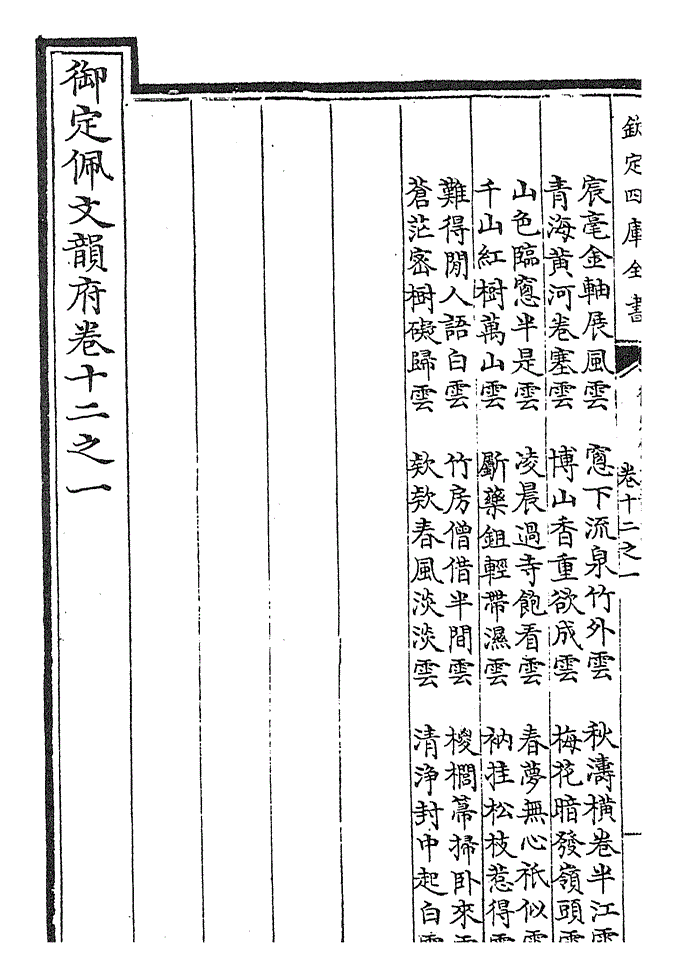 欽定四庫全書
卷十二之一
宸毫金軸展風雲 窻下流泉竹外雲 秋濤橫卷半江雲
青海黄河卷塞雲 博山香重欲成雲 梅花暗發嶺頭雲
山色臨窻半是雲 凌晨過寺飽看雲 春夢無心祇似雲
千山紅樹萬山雲 斸藥鉏輕帶濕雲 衲挂松枝惹得雲
難得閒人語白雲 竹房僧借半間雲 椶櫚箒掃卧來雲
蒼茫密樹礙歸雲 欵欵春風淡淡雲 清浄封中起白雲
御定佩文韻府卷十二之一